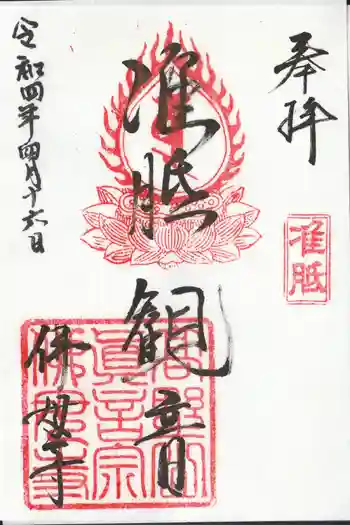 奉拝
准胝
准胝観音
眞言宗
佛母寺
令和四年四月十六日